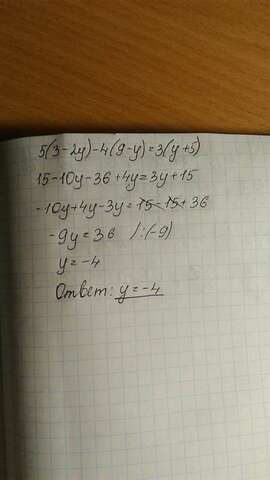 5(3-2y)-4(9-y)=3(y+5)
15-10y-36+4y=3y+15
-10y+4y-3y=15-15+36
-9y=36 /:(-9)
y=-4
Ответ: y=-4